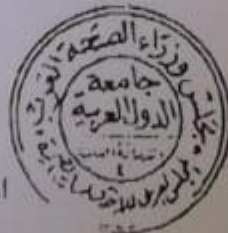 مجلس وزراء الصحة العرب
جامعة
الدول العربية
الأمانة العامة
٤
المجلس العربي للاختصاصات الصحية